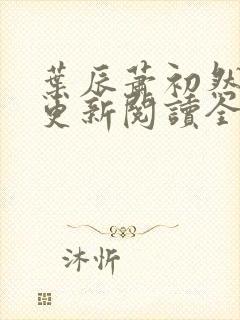 葉辰蕭初然
更新閱讀全
沐忻